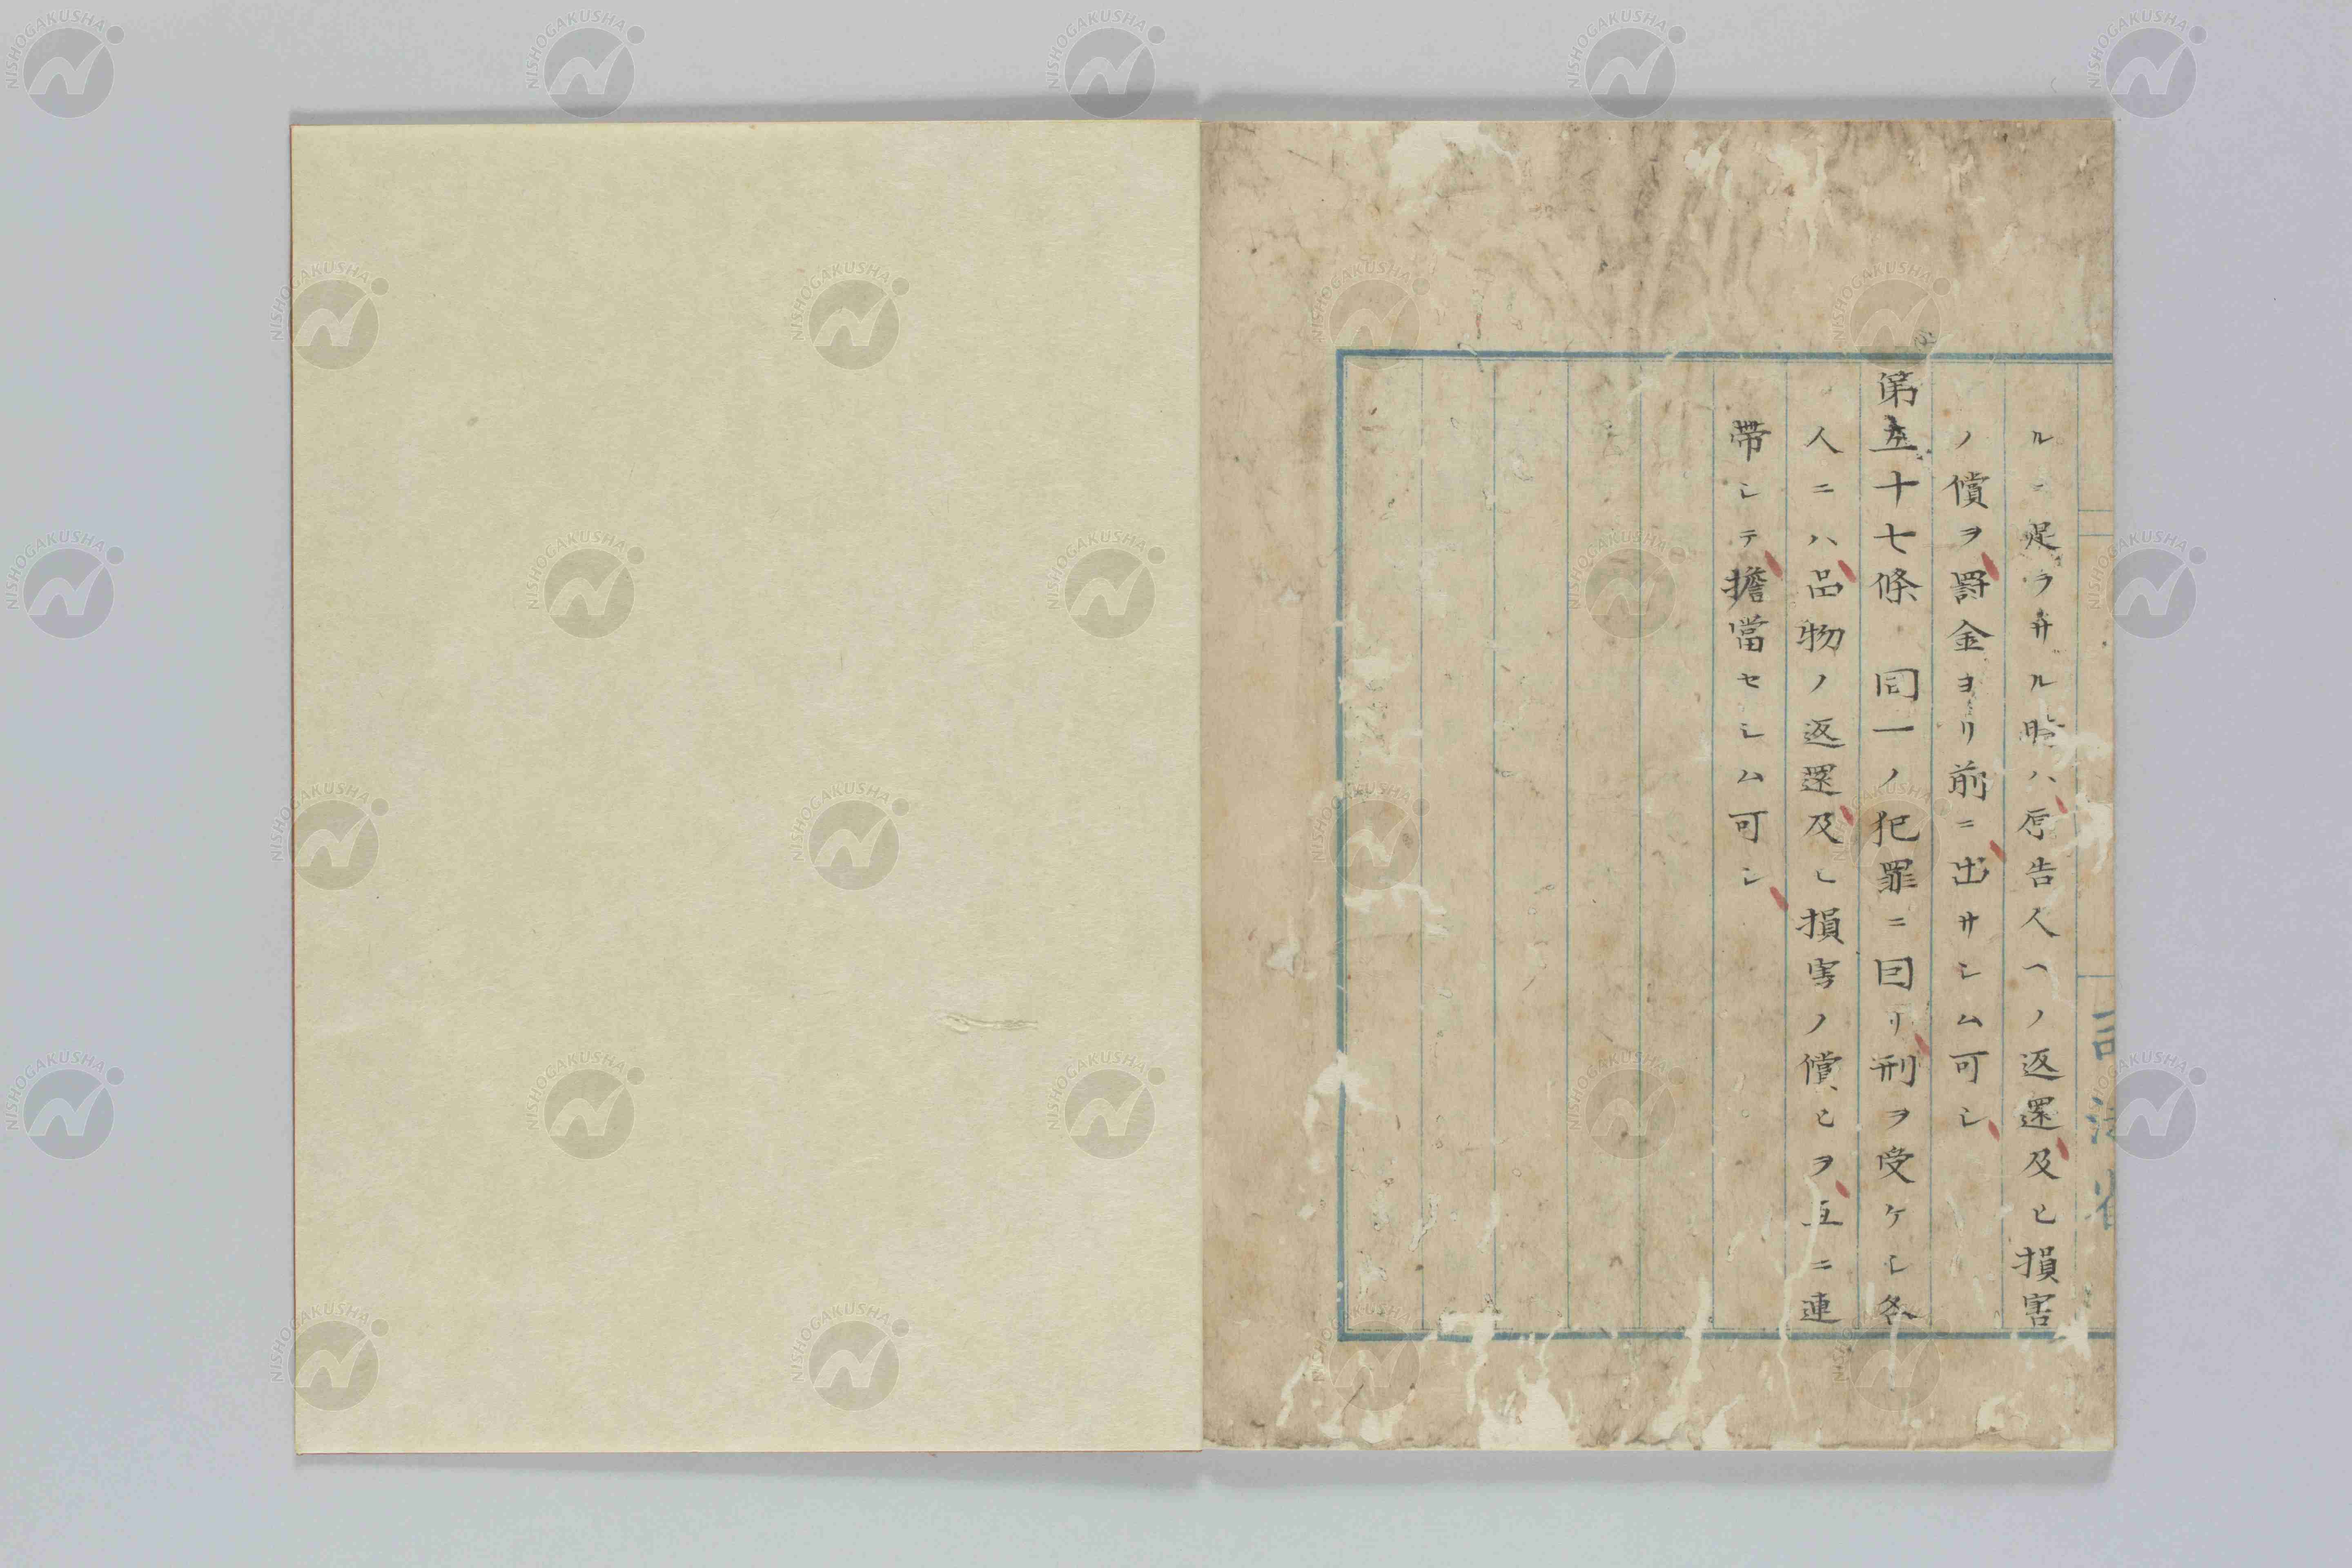 司法省
ルニ足ラサル時ハ原告人ヘノ返還及ヒ損害
ノ償ヲ罸金ヨリ前ニ出サシム可シ
第五十七條　同一ノ犯罪ニ因リ刑ヲ受ケシ各
人ニハ品物ノ返還及ヒ損害ノ償ヒヲ互ニ連
帶シテ擔當セシム可シ
NISHOGAKUSHA